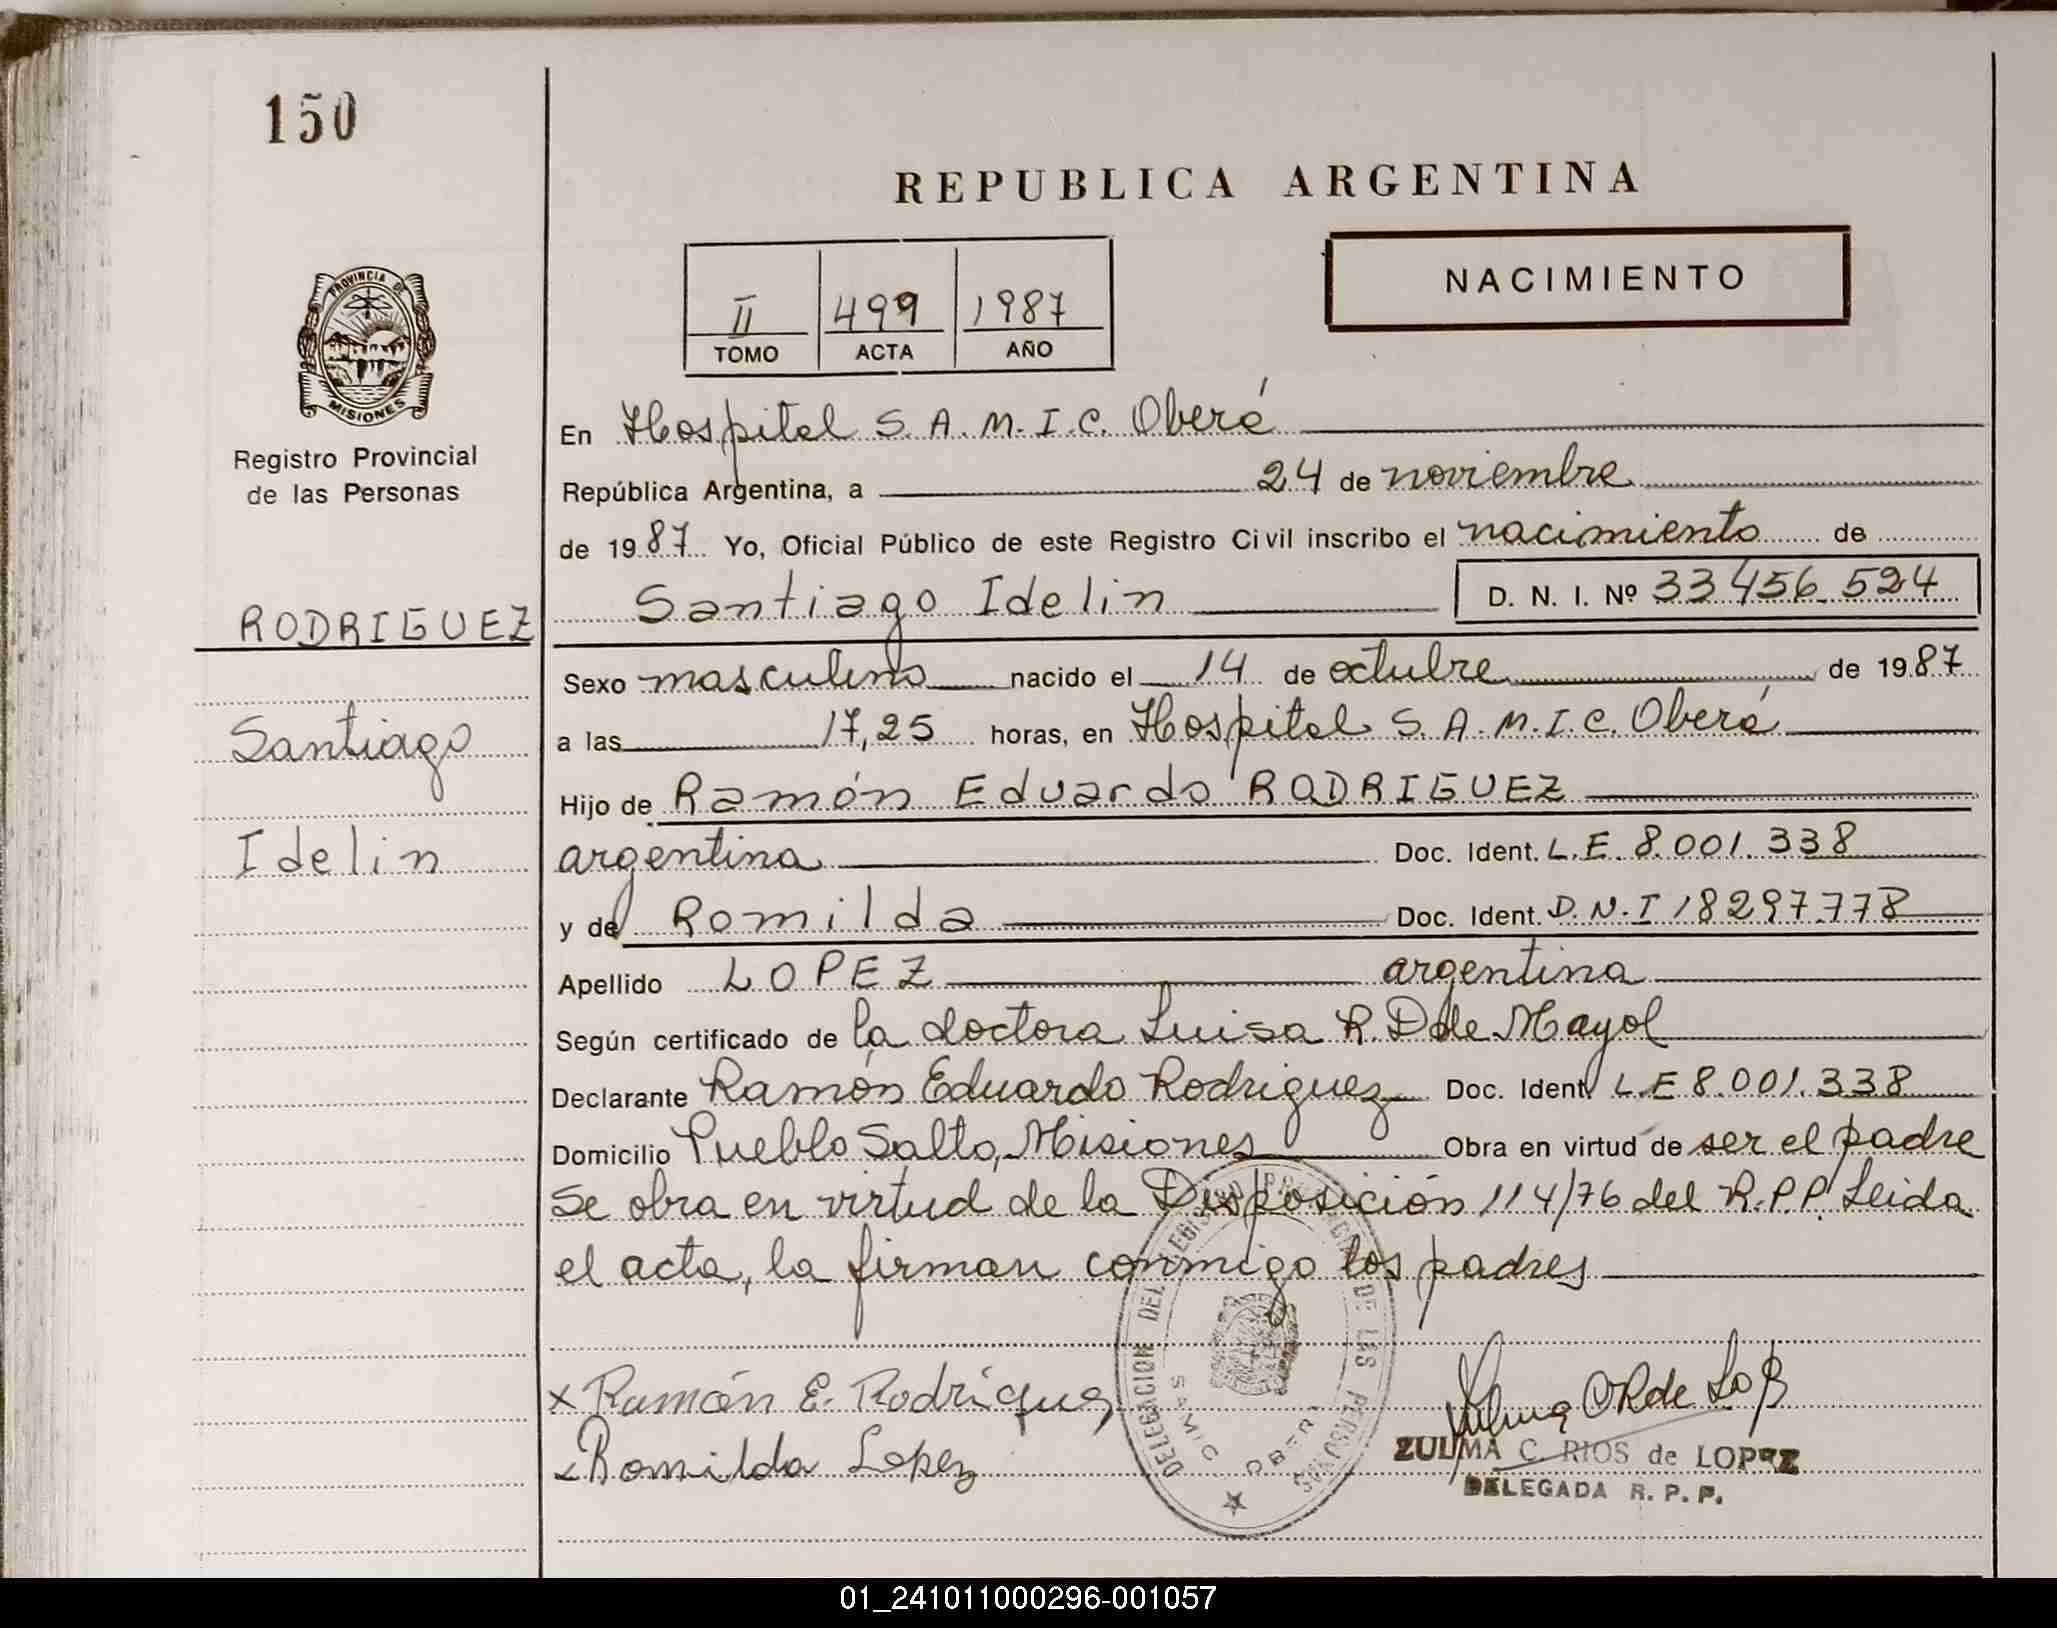 150
REPUBLICA ARGENTINA
NACIMIENTO
II 499 1987
TOMO ACTA AÑO
PROVINCIA DE
MISIONES
Registro Provincial
de las Personas
RODRIGUEZ
Santiago
Idelin
En Hospital S.A.M.I.C. Oberá
República Argentina, a 24 de noviembre
de 1987 Yo, Oficial Público de este Registro Civil inscribo el nacimiento de
Santiago Idelin D. N. I. Nº 33 456.524
Sexo masculino nacido el 14 de octubre de 1987
a las 17,25 horas, en Hospital S.A.M.I.C. Oberá
Hijo de Ramón Eduardo RODRIGUEZ
argentina Doc. Ident. L.E. 8.001.338
y de Romilda Doc. Ident. D.N.I 18297.778
Apellido LOPEZ argentina
Según certificado de la doctora Luisa R. D de Mayol
Declarante Ramón Eduardo Rodriguez Doc. Ident. L.E 8.001.338
Domicilio Pueblo Salto, Misiones Obra en virtud de ser el padre
Se obra en virtud de la Disposición 114/76 del R.P.P. Leida
el acta, la firman conmigo los padres
x Ramón E. Rodríguez
x Romilda Lopez
DELEGACION DEL REGISTRO PROVINCIAL DE LAS PERSONAS
SAMIC OBERA
Zulma C R de
ZULMA C. RIOS de LOPEZ
DELEGADA R. P. P.
01_241011000296-001057